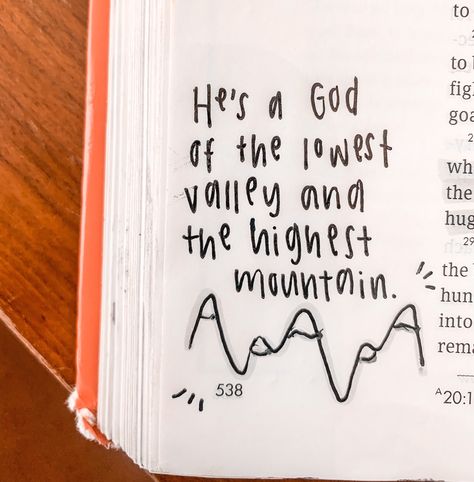 He's a God
of the lowest
valley and
the highest
mountain.
538
to
to
fig
goa
2
wh
the
hug
29
the
hun
into
rema
A20:1